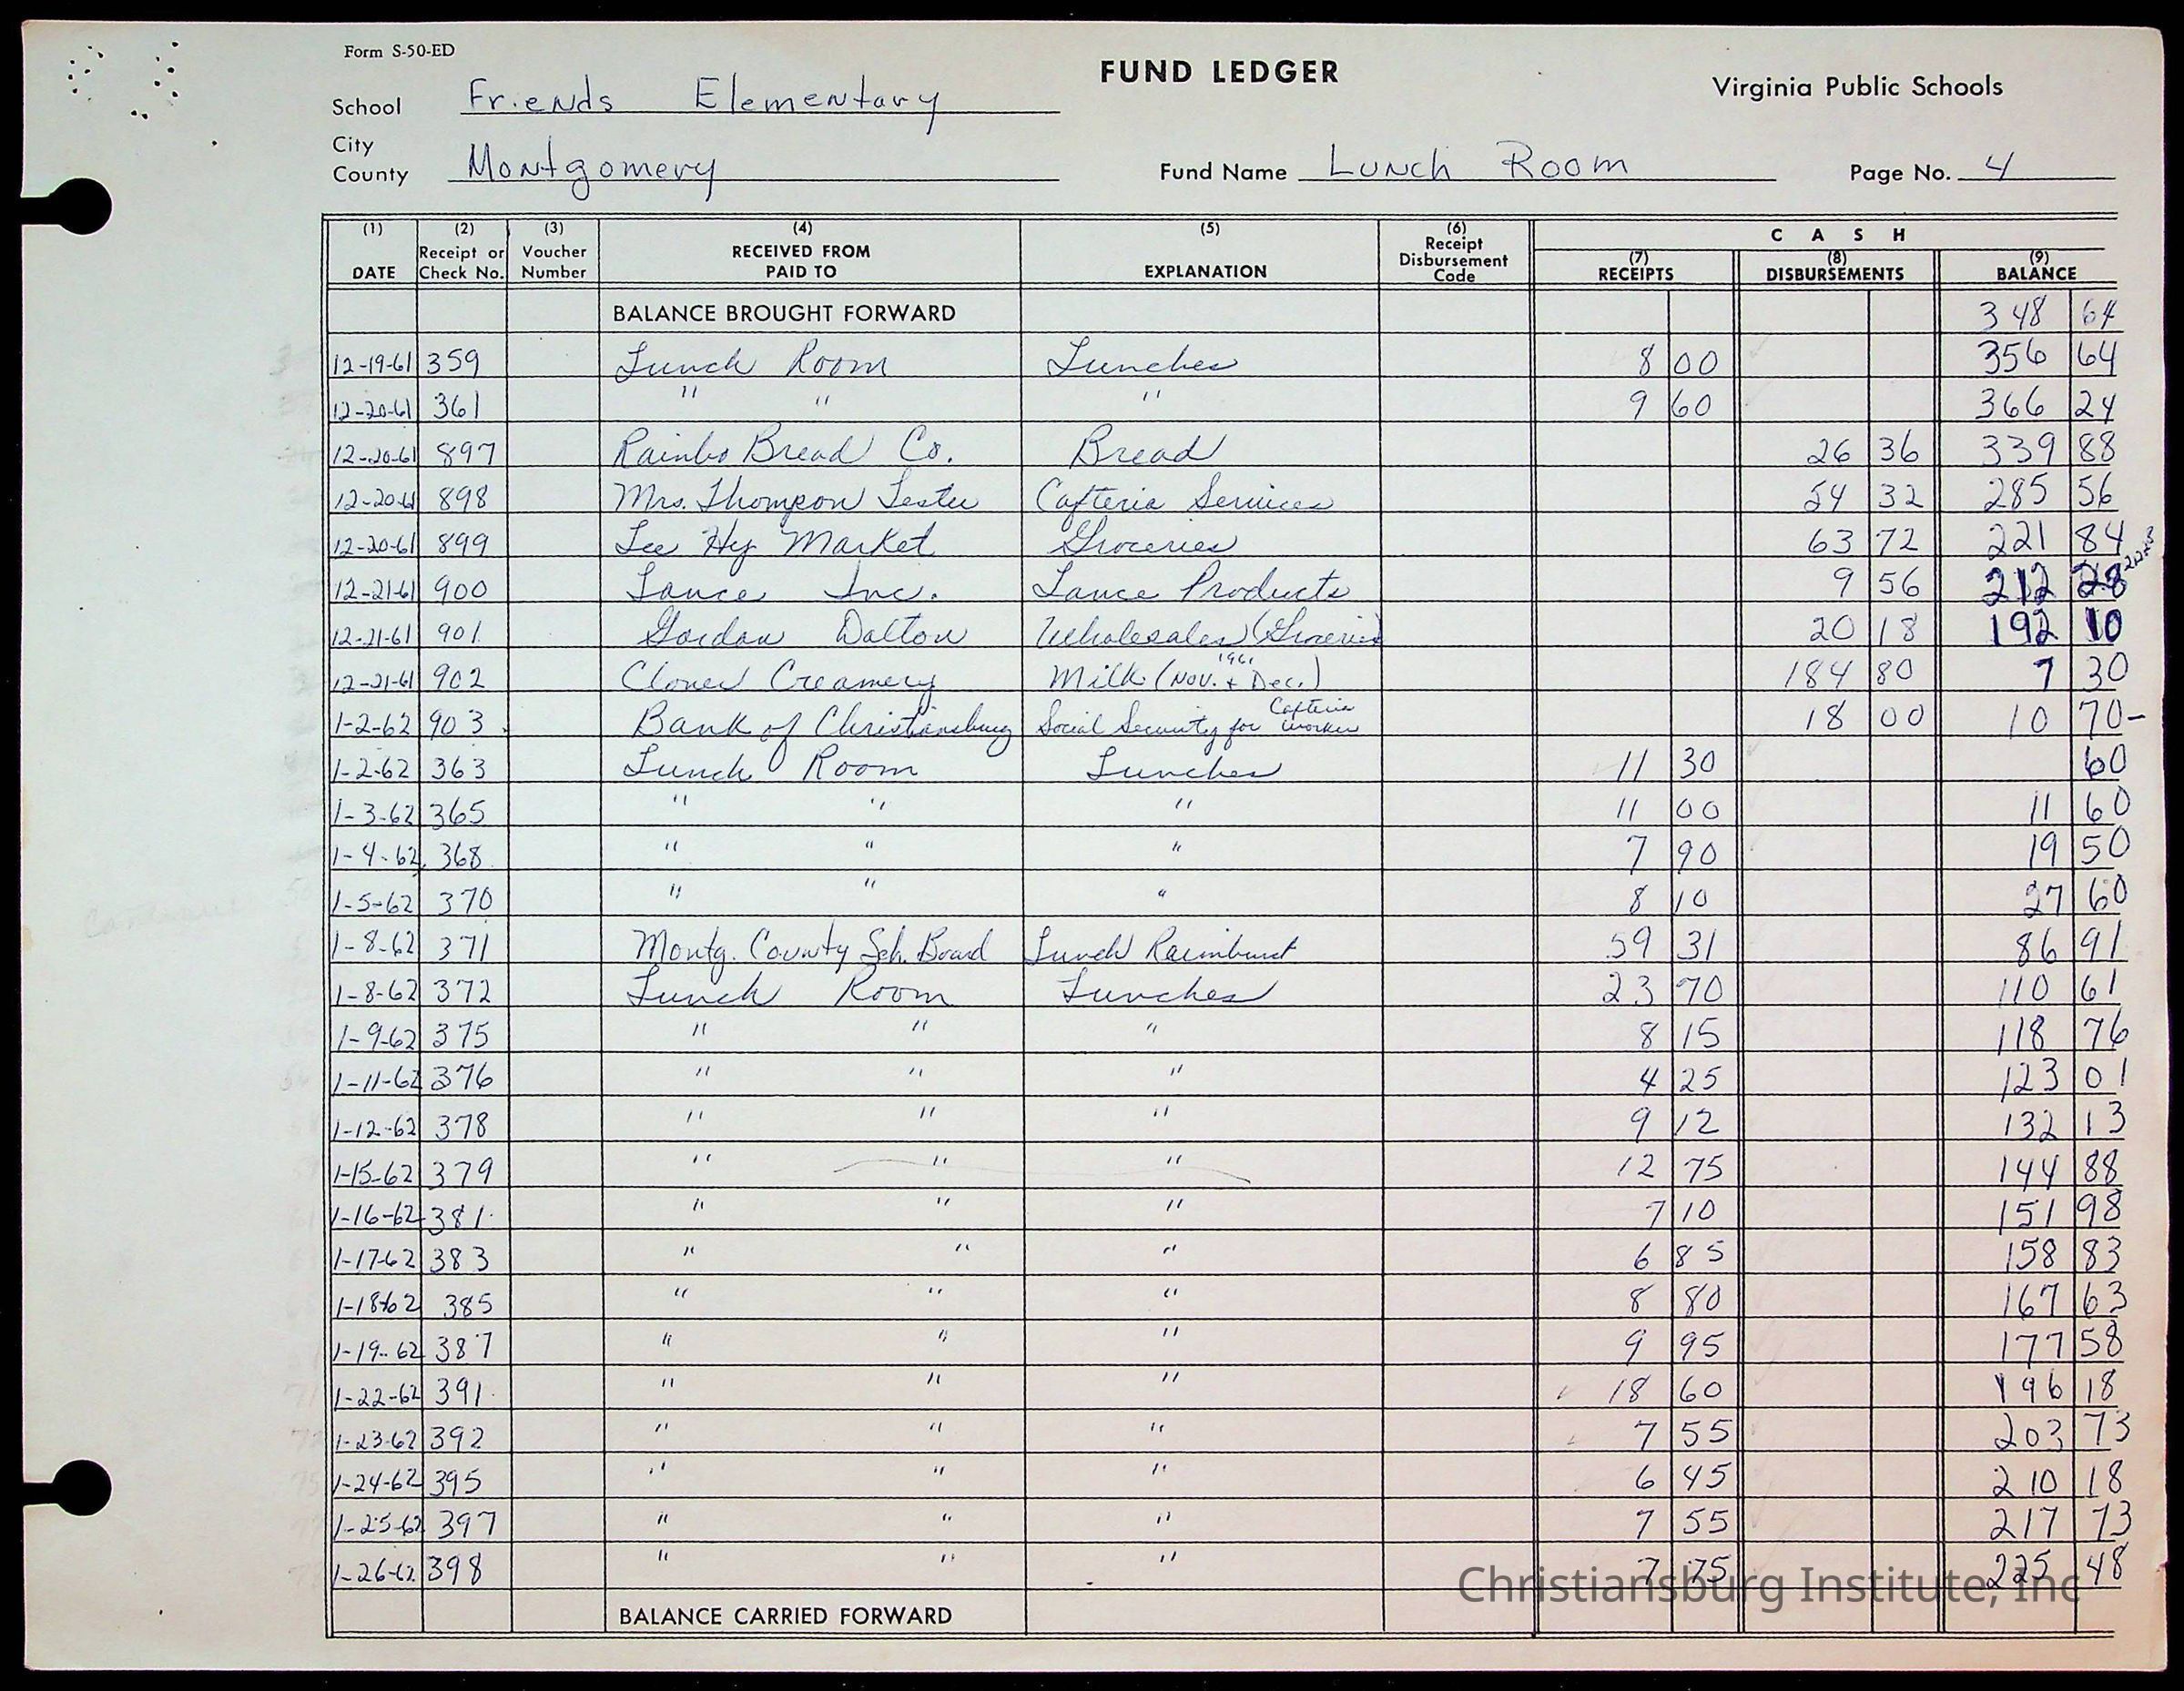 Form S-50-ED
FUND LEDGER
Virginia Public Schools
School Friends Elementary
City
County Montgomery
Fund Name Lunch Room
Page No. 4
(1) DATE (2) Receipt or Check No. (3) Voucher Number (4) RECEIVED FROM PAID TO (5) EXPLANATION (6) Receipt Disbursement Code CASH (7) RECEIPTS (8) DISBURSEMENTS (9) BALANCE
BALANCE BROUGHT FORWARD 348 64
12-19-61 359 Lunch Room Lunches 8 00 356 64
12-20-61 361 " " " 9 60 366 24
12-20-61 897 Rainbo Bread Co. Bread 26 36 339 88
12-20-61 898 Mrs. Thompson Lester Cafteria Services 54 32 285 56
12-20-61 899 Lee Hy Market Groceries 63 72 221 84
12-21-61 900 Lance Inc. Lance Products 9 56 212 28
12-21-61 901 Gordan Dalton Wholesales (Groceries 20 18 192 10
12-21-61 902 Clover Creamery Milk (Nov. + Dec.) 1961 184 80 7 30
1-2-62 903 Bank of Christiansburg Social Security for Cafteria worker 18 00 10 70-
1-2-62 363 Lunch Room Lunches 11 30 60
1-3-62 365 " " " 11 00 11 60
1-4-62 368 " " " 7 90 19 50
1-5-62 370 " " " 8 10 27 60
1-8-62 371 Montg. County Sch. Board Lunch Raimburst 59 31 86 91
1-8-62 372 Lunch Room Lunches 23 70 110 61
1-9-62 375 " " " 8 15 118 76
1-11-62 376 " " " 4 25 123 01
1-12-62 378 " " " 9 12 132 13
1-15-62 379 " " " 12 75 144 88
1-16-62 381 " " " 7 10 151 98
1-17-62 383 " " " 6 85 158 83
1-18-62 385 " " " 8 80 167 63
1-19-62 387 " " " 9 95 177 58
1-22-62 391 " " " 18 60 196 18
1-23-62 392 " " " 7 55 203 73
1-24-62 395 " " " 6 45 210 18
1-25-62 397 " " " 7 55 217 73
1-26-62 398 " " " 7 75 225 48
BALANCE CARRIED FORWARD
Christiansburg Institute, Inc